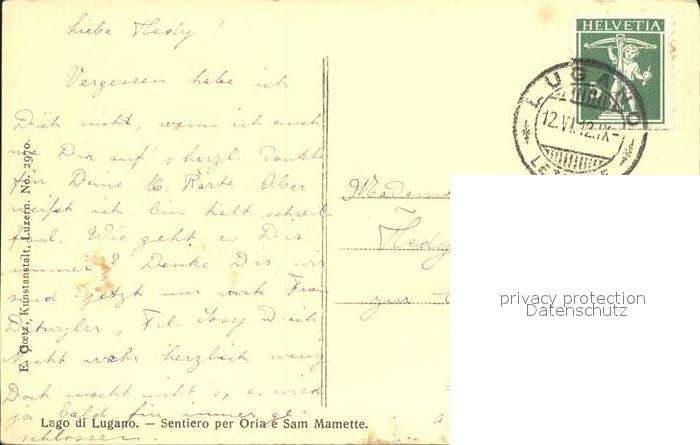 liebe Hedy!
Vergessen habe ich
Dich nicht, wenn ich auch
Dir auf's herzl. dankte
für Deine lb. Karte. Aber
weißt ich bin halt schreib
faul. Wie geht es Dir
immer? Denke Dir, wir
sind jetzt nur noch
Frl. Josy & ich
Nicht wahr herzlich wenig
Doch macht nicht's, es wird
ja bald für immer ge-
schlossen.
E. Goetz, Kunstanstalt, Luzern. No. 2970.
Lago di Lugano. — Sentiero per Oria e Sam Mamette.
HELVETIA
5
LUGANO
12.VI.12.IX-
Hedy
zur
privacy protection
Datenschutz